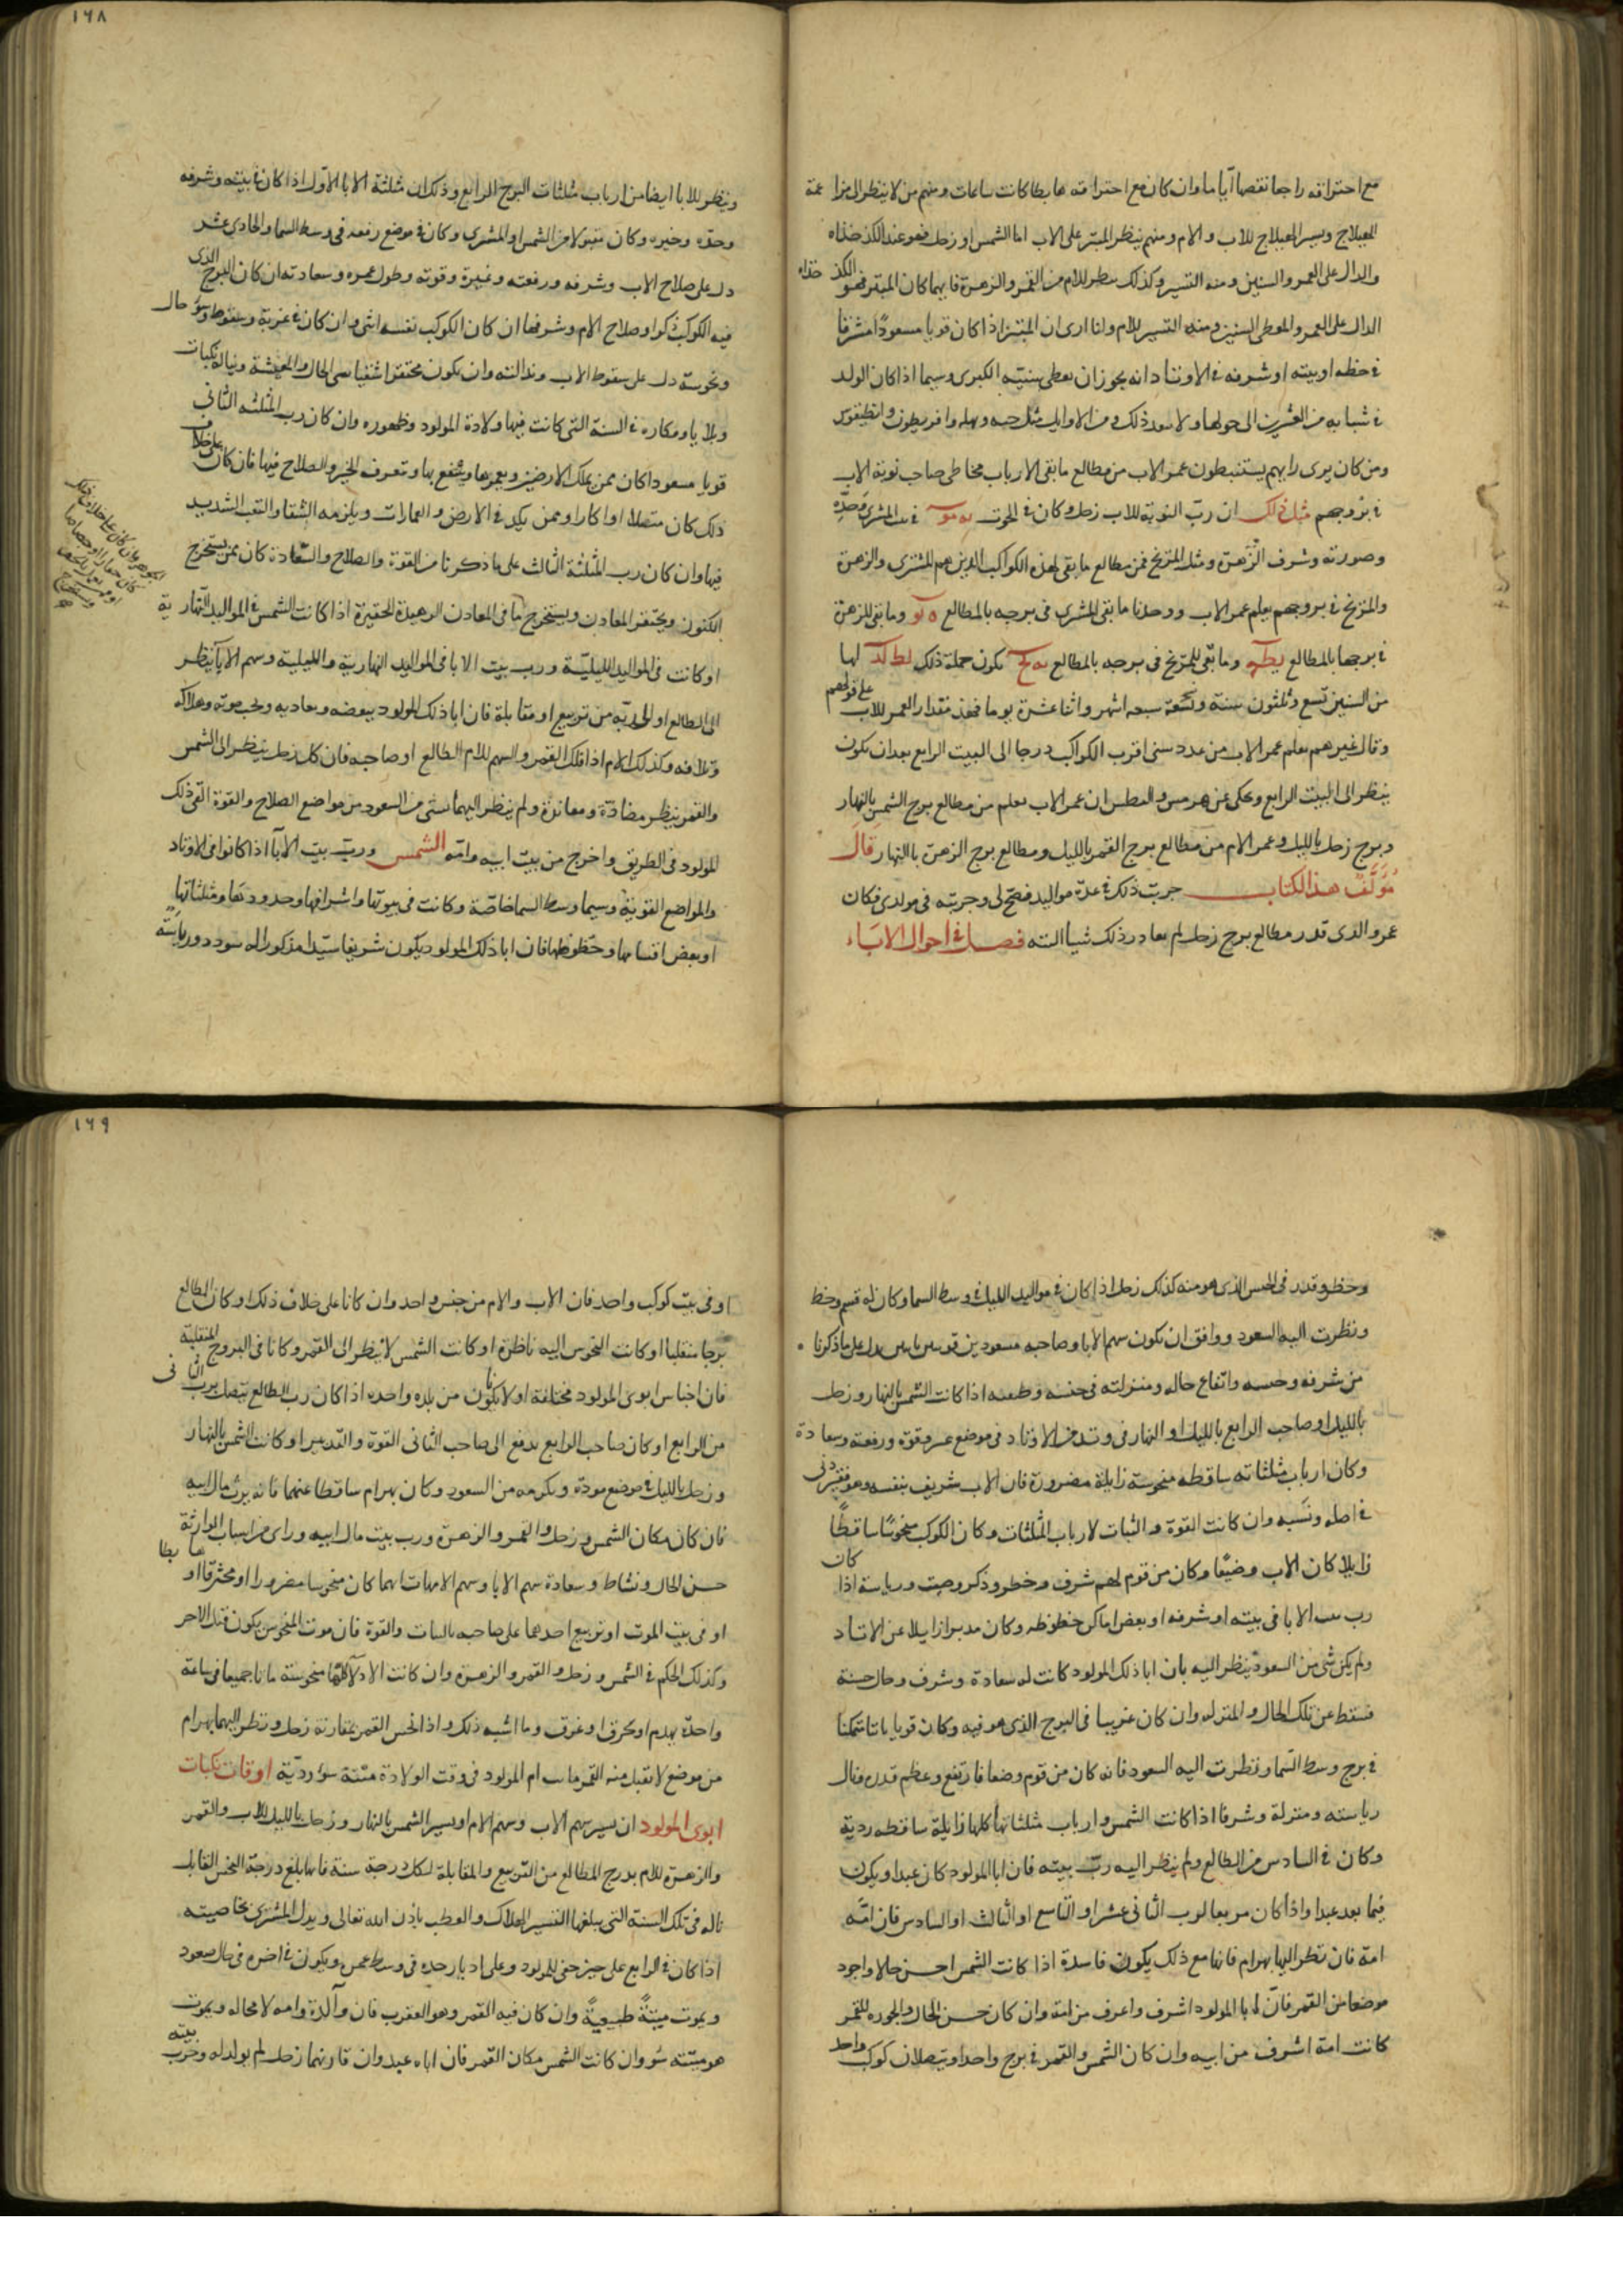 ١٦٨
مع احتراقه راجعا نقصها آياما وان كان مع احتراقه هابطا كانت ساعات ومنهم من لا ينظر الى مزاعمة
الهيلاج ويسير الهيلاج للاب والام ومنهم ينظر المبتز على الاب اما الشمس او زحل فهو عند الكذخذاه
والدال على العمر والسنين ومنه التسيير وكذلك ينظر للام من القمر والزهرة فايهما كان المبتز فهو الكذخذاه
الدال على العمر والمعطى السنين ومنه التسيير للام وانا ارى ان المبتز اذا كان قويا مسعودا مشرقا
فى حظه او بيته او شرفه فى الاوتاد انه يجوز ان يعطى سنيه الكبرى وسيما اذا كان الولد
فى شبابه من العشرين الى حولها ولا يبعد ذلك ومن الاوايل مثل
ومن كان يرى رايهم يستنبطون عمر الاب من مطالع ما بقى لارباب صاحب نوبة الاب
فى بروجهم مثل ذلك ان ربّ النوبة للاب زحل وكان فى الحوت فى بيت المشترى وحدّه
وصورته وشرف الزهرة ومثلثة المريخ فمن مطالع ما بقى لهذه الكواكب الذين هم المشترى والزهرة
والمريخ فى بروجهم يعلم عمر الاب ووجدنا ما بقى للمشترى فى برجه بالمطالع وما بقى للزهرة
فى برجها بالمطالع وما بقى للمريخ فى برجه بالمطالع يكون جملة ذلك لها
من السنين تسع وثلثون سنة سبعة اشهر واثنا عشرة يوما فهذه مقدار العمر للاب على قولهم
وقال غيرهم يعلم عمر الاب من عدد سنى اقرب الكواكب درجا الى البيت الرابع بعد ان يكون
ينظر الى البيت الرابع وحكى عن هرمس و ان عمر الاب يعلم من مطالع برج الشمس بالنهار
وبرج زحل بالليل وعمر الام من مطالع برج القمر بالليل ومطالع برج الزهرة بالنهار قال
مؤلف هذا الكتاب جربت ذلك فى عدة مواليد فصح لى وجربته فى مولدى فكان
عمر والدى قدر مطالع برج زحل لم يغادر ذلك شيا البتة فصل فى احوال الاباء
وينظر للابا ايضا من ارباب مثلثات البرج الرابع وذلك ان مثلثة الابا الاول اذا كان فى بيته وشرفه
وحدّه وحيزه وكان مقبولا من الشمس او المشترى وكان فى موضع رفعه فى وسط السما والحادى عشر
دل على صلاح الاب وشرفه ورفعته وقوته وطول عمره وسعادته ان كان البرج الذى
فيه الكوكب ذكرا وصلاح الام وشرفها ان كان الكوكب نفسه انثى وان كان فى غربة وسقوط وسؤ حال
ونحوسة دل على سقوط الاب ونذالته وان يكون محتقرا شقيا سى الحال والمعيشة ونيالة نكبات
وبلايا ومكاره فى السنة التى كانت فيها ولادة المولود وظهوره وان كان رب المثلثه الثانى
قويا مسعودا كان ممن يملك الارضين ويعمرها وينتفع بها وتعرف الخير والصلاح فيها فان كان على خلاف
ذلك كان او اكارا وممن يكد فى الارض والعمارات ويلزمه الشقا والتعب الشديد
فيها وان كان رب المثلثة الثالث على ما ذكرنا من القوة والصلاح والسّعادة كان ممن يستخرج
الكنوز ويحتفر المعادن ويستخرج ما فى المعادن الحقيرة اذا كانت الشمس فى المواليد النهارية
او كانت فى المواليد الليليّة ورب بيت الابا فى المواليد النهارية والليلية وسهم الابا ينظر
الى الطالع او الى ربّه من تربيع او مقابلة فان ابا ذلك المولود يبغضه ويعاديه ويحب موته وهلاكه
وتلافه وكذلك الام اذا فلك القمر والسهم للام الطالع او صاحبه فان كل زحل ينظر الى الشمس
والقمر ينظر مضادة ومعاندة ولم ينظر اليهما شى من السعود من مواضع الصلاح والقوة القى ذلك
المولود فى الطريق واخرج من بيت ابيه وامّه الشمس وربّ بيت الآبا اذا كانوا فى الاوتاد
والمواضع القوية وسيما وسط السما خاصة وكانت فى بيوتها واشرافها وحدودها ومثلثاتها
او بعض اقسامها وحظوظها فان ابا ذلك المولود يكون شريفا سيّدا مذكورا له سودد ورياسة
١٦٩
وخطر وقدر فى الجنس الذى هو منه كذلك زحل اذا كان فى مواليد الليل فى وسط السما وكان له قسم وحظ
ونظرت اليه السعود ووافق ان يكون سهم الابا وصاحبه مسعودين قويين دل على ما ذكرنا
من شرفه وحسبه وارتفاع حاله ومنزلته فى جنسه اذا كانت الشمس بالنهار وزحل
بالليل او صاحب الرابع بالليل او النهار فى وتد من الاوتاد فى موضع عز وقوة ورفعة وسعادة
وكان ارباب مثلثاته ساقطه منحوسة زايلة مضرورة فان الاب شريف بنفسه وهو فقير دنى
فى اصله ونسبه وان كانت القوة والثبات لارباب المثلثات وكان الكوكب منحوسًا ساقطًا
زايلا كان الاب وضيعًا وكان من قوم لهم شرف وخطر وذكر وصيت ورياسة اذا كان
رب بيت الابا فى بيته او شرفه او بعض اماكن حظوظه وكان مدبرا زايلا عن الاوتاد
ولم يكن شى من السعود ينظر اليه بان ابا ذلك المولود كانت له سعادة وشرف وحال حسنة
فسقط عن تلك الحال والمنزله وان كان غريبا فى البرج الذى هو فيه وكان قويا ثابتا متمكنا
فى برج وسط السّما ونظرت اليه السعود فانه كان من قوم وضعا فارتفع وعظم قدره ونال
رياسته ومنزلة وشرفا اذا كانت الشمس وارباب مثلثاتها كلها زايلة ساقطه ردية
وكان فى السادس من الطالع ولم ينظر اليه ربّ بيته فان ابا المولود كان عبدا ويكون
فيما بعد عبدا واذا كان مربعا لرب الثانى عشر او التاسع او الثالث او السادس فان امّه
امة فان نظر اليها بهرام فانها مع ذلك يكون فاسدة اذا كانت الشمس احسن حالا واجود
موضعا من القمر فانّ ابا المولود اشرف واعرف من امّه وان كان حسن الحال والجوده للقمر
كانت امه اشرف من ابيه وان كان الشمس والقمر فى برج واحد او يتصلان كوكب واحد
او فى بيت كوكب واحد فان الاب والام من جنس واحد وان كانا على خلاف ذلك او كان الطالع
برجا منقلبا او كانت النحوس اليه ناظرة او كانت الشمس لا ينظر الى القمر وكانا فى البروج المنقلبة
فان اجناس ابوى المولود مختلفة او لا يكونا من بلده واحده اذا كان رب الطالع يتصل برب الثانى
من الرابع او كان صاحب الرابع يدفع الى صاحب الثانى القوة والتدبير او كانت الشمس بالنهار
وزحل بالليل فى موضع مودة ومكرمه من السعود وكان بهرام ساقطا عنهما فانه يرث مال ابيه
فان كان مكان الشمس وزحل والقمر والزهرة ورب بيت مال ابيه وراى من اسباب الوارثة
حسن الحال ونشاط وسعادة سهم الابا وسهم الامهات ايهما كان منحوسا مضرورا او محترقا او هابطا
او فى بيت الموت او تربيع احدهما على صاحبه بالثبات والقوة فان موت المنحوس يكون قبل الاخر
وكذلك الحكم فى الشمس وزحل والقمر والزهرة وان كانت الادلآ كلها منحوسة ماتا جميعا فى ساعة
واحدة بهدم او بحرق او غرق وما اشبه ذلك واذا نحس القمر بمقارنة زحل ونظر اليهما بهرام
من موضع لا تقبل منه القمر ماتت ام المولود فى وقت الولادة ميتة سؤ رديّة اوقات نكبات
ابوى المولود ان يسير سهم الاب وسهم الام او يسير الشمس بالنهار وزحل بالليل للاب والقمر
والزهرة للام بدرج المطالع من التربيع والمقابلة لكل درجة سنة فانها بلغ درجة النحس القابل
ناله فى تلك السنة التى يبلغها التسيير الهلاك والعطب باذن الله تعالى ويدل المشترى بخاصيته
اذا كان فى الرابع على خير حتى للمولود وعلى ادبار جده فى وسط عمره ويكون فى اخره فى حال صعود
ويموت ميتةً طبيعيةً وان كان فيه القمر وهو العقرب فان وآلدة وامه لا محاله ويموت
هو ميتته سؤ وان كانت الشمس مكان القمر فان اباه عبد وان قارنهما زحل لم يولد له وخرب بيته